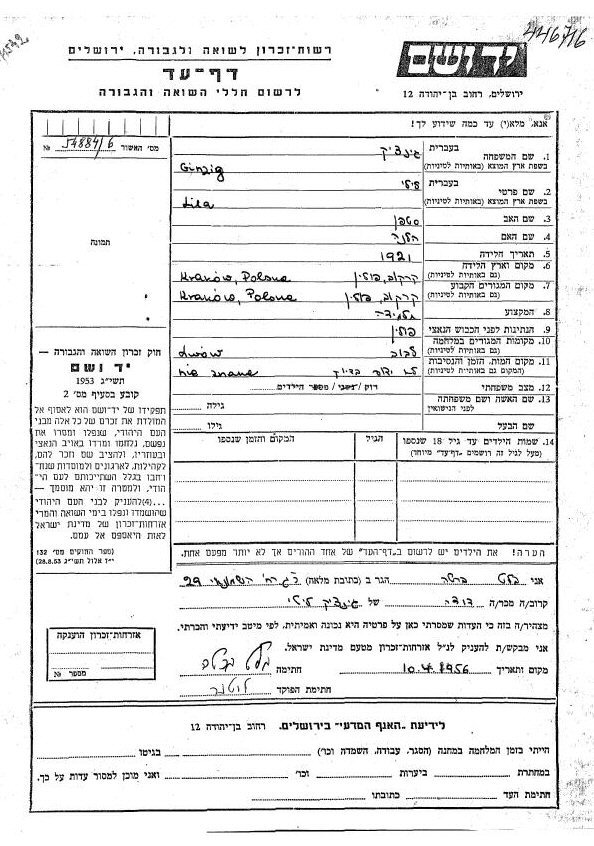 446716
יד ושם
ירושלים, רחוב בן־יהודה 12
רשות־זכרון לשואה ולגבורה, ירושלים
דף־עד
לרשום חללי השואה והגבורה
אנא, מלא(י) עד כמה שידוע לך!
מס' האשור 54884/6 №
תמונה
1. שם המשפחה
בעברית גינציק
בשפת ארץ המוצא (באותיות לטיניות) Ginzig
2. שם פרטי
בעברית לילי
בשפת ארץ המוצא (באותיות לטיניות) Lila
3. שם האב סטפן
4. שם האם הלנה
5. תאריך הלידה 1921
6. מקום וארץ הלידה קרקוב, פולין Kraków, Polona
(גם באותיות לטיניות)
7. מקום המגורים הקבוע קרקוב, פולין Kraków, Polona
(גם באותיות לטיניות)
8. המקצוע תלמידה
9. הנתינות לפני הכבוש הנאצי פולין
10. מקומות המגורים במלחמה לבוב Lwów
(גם באותיות לטיניות)
11. מקום המות, הזמן והנסיבות לא ידוע בדיוק nie znane
(המקום גם באותיות לטיניות)
12. מצב משפחתי רוק / נשוי / מספר הילדים
13. שם האשה ושם משפחתה
לפני הנישואין
גילה
שם הבעל
גילו
14. שמות הילדים עד גיל 18 שנספו
(מעל לגיל זה רושמים "דף־עד" מיוחד)
הגיל
המקום והזמן שנספו
חוק זכרון השואה והגבורה —
יד ושם
תשי"ג 1953
קובע בסעיף מס' 2
תפקידו של יד־ושם הוא לאסוף אל
המולדת את זכרם של כל אלה מבני
העם היהודי, שנפלו ומסרו את
נפשם, נלחמו ומרדו באויב הנאצי
ובעוזריו, ולהציב שם וזכר להם,
לקהילות, לארגונים ולמוסדות שנח־
רבו בגלל השתייכותם לעם הי־
הודי, ולמטרה זו יהא מוסמך —
...(4)להעניק לבני העם היהודי
שהושמדו ונפלו בימי השואה והמרי
אזרחות־זכרון של מדינת ישראל
לאות היאספם אל עמם.
(ספר החוקים מס' 132
י"ז אלול תשי"ג 28.8.53)
הערה! את הילדים יש לרשום ב"דף־העד" של אחד ההורים אך לא יותר מפעם אחת.
אני הגר ב (כתובת מלאה) 29
קרוב/ה מכר/ה דודה של גינציק לילי
מצהיר/ה בזה כי העדות שמסרתי כאן על פרטיה היא נכונה ואמיתית, לפי מיטב ידיעתי והכרתי.
אני מבקש/ת להעניק לנ"ל אזרחות־זכרון מטעם מדינת ישראל.
מקום ותאריך 10.4.1956 חתימה
חתימת הפוקד
אזרחות־זכרון הוענקה
מספר №
לידיעת "האנף המדעי" בירושלים, רחוב בן־יהודה 12
הייתי בזמן המלחמה במחנה (הסגר, עבודה, השמדה וכו') בגיטו
במחתרת ביערות וכו' ואני מוכן למסור עדות על כך.
חתימת העד כתובתו